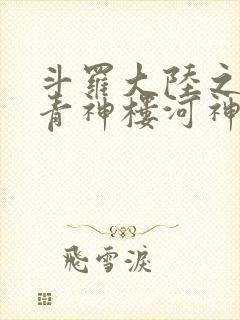 斗羅大陸之
青神樓河神
飛雪淚